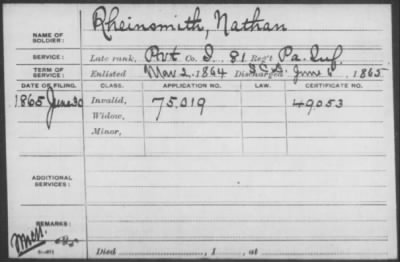 Rheinsmith, Nathan
NAME OF SOLDIER:
SERVICE: Late rank, Pvt Co. I, 81 Reg't Pa. Inf.
TERM OF SERVICE: Enlisted Mar 2, 1864 Discharged June 1865
DATE OF FILING. CLASS. APPLICATION NO. LAW. CERTIFICATE NO.
1865 June 30 Invalid, 75.019 49053
Widow,
Minor,
ADDITIONAL SERVICES:
REMARKS:
Died , 1 , at